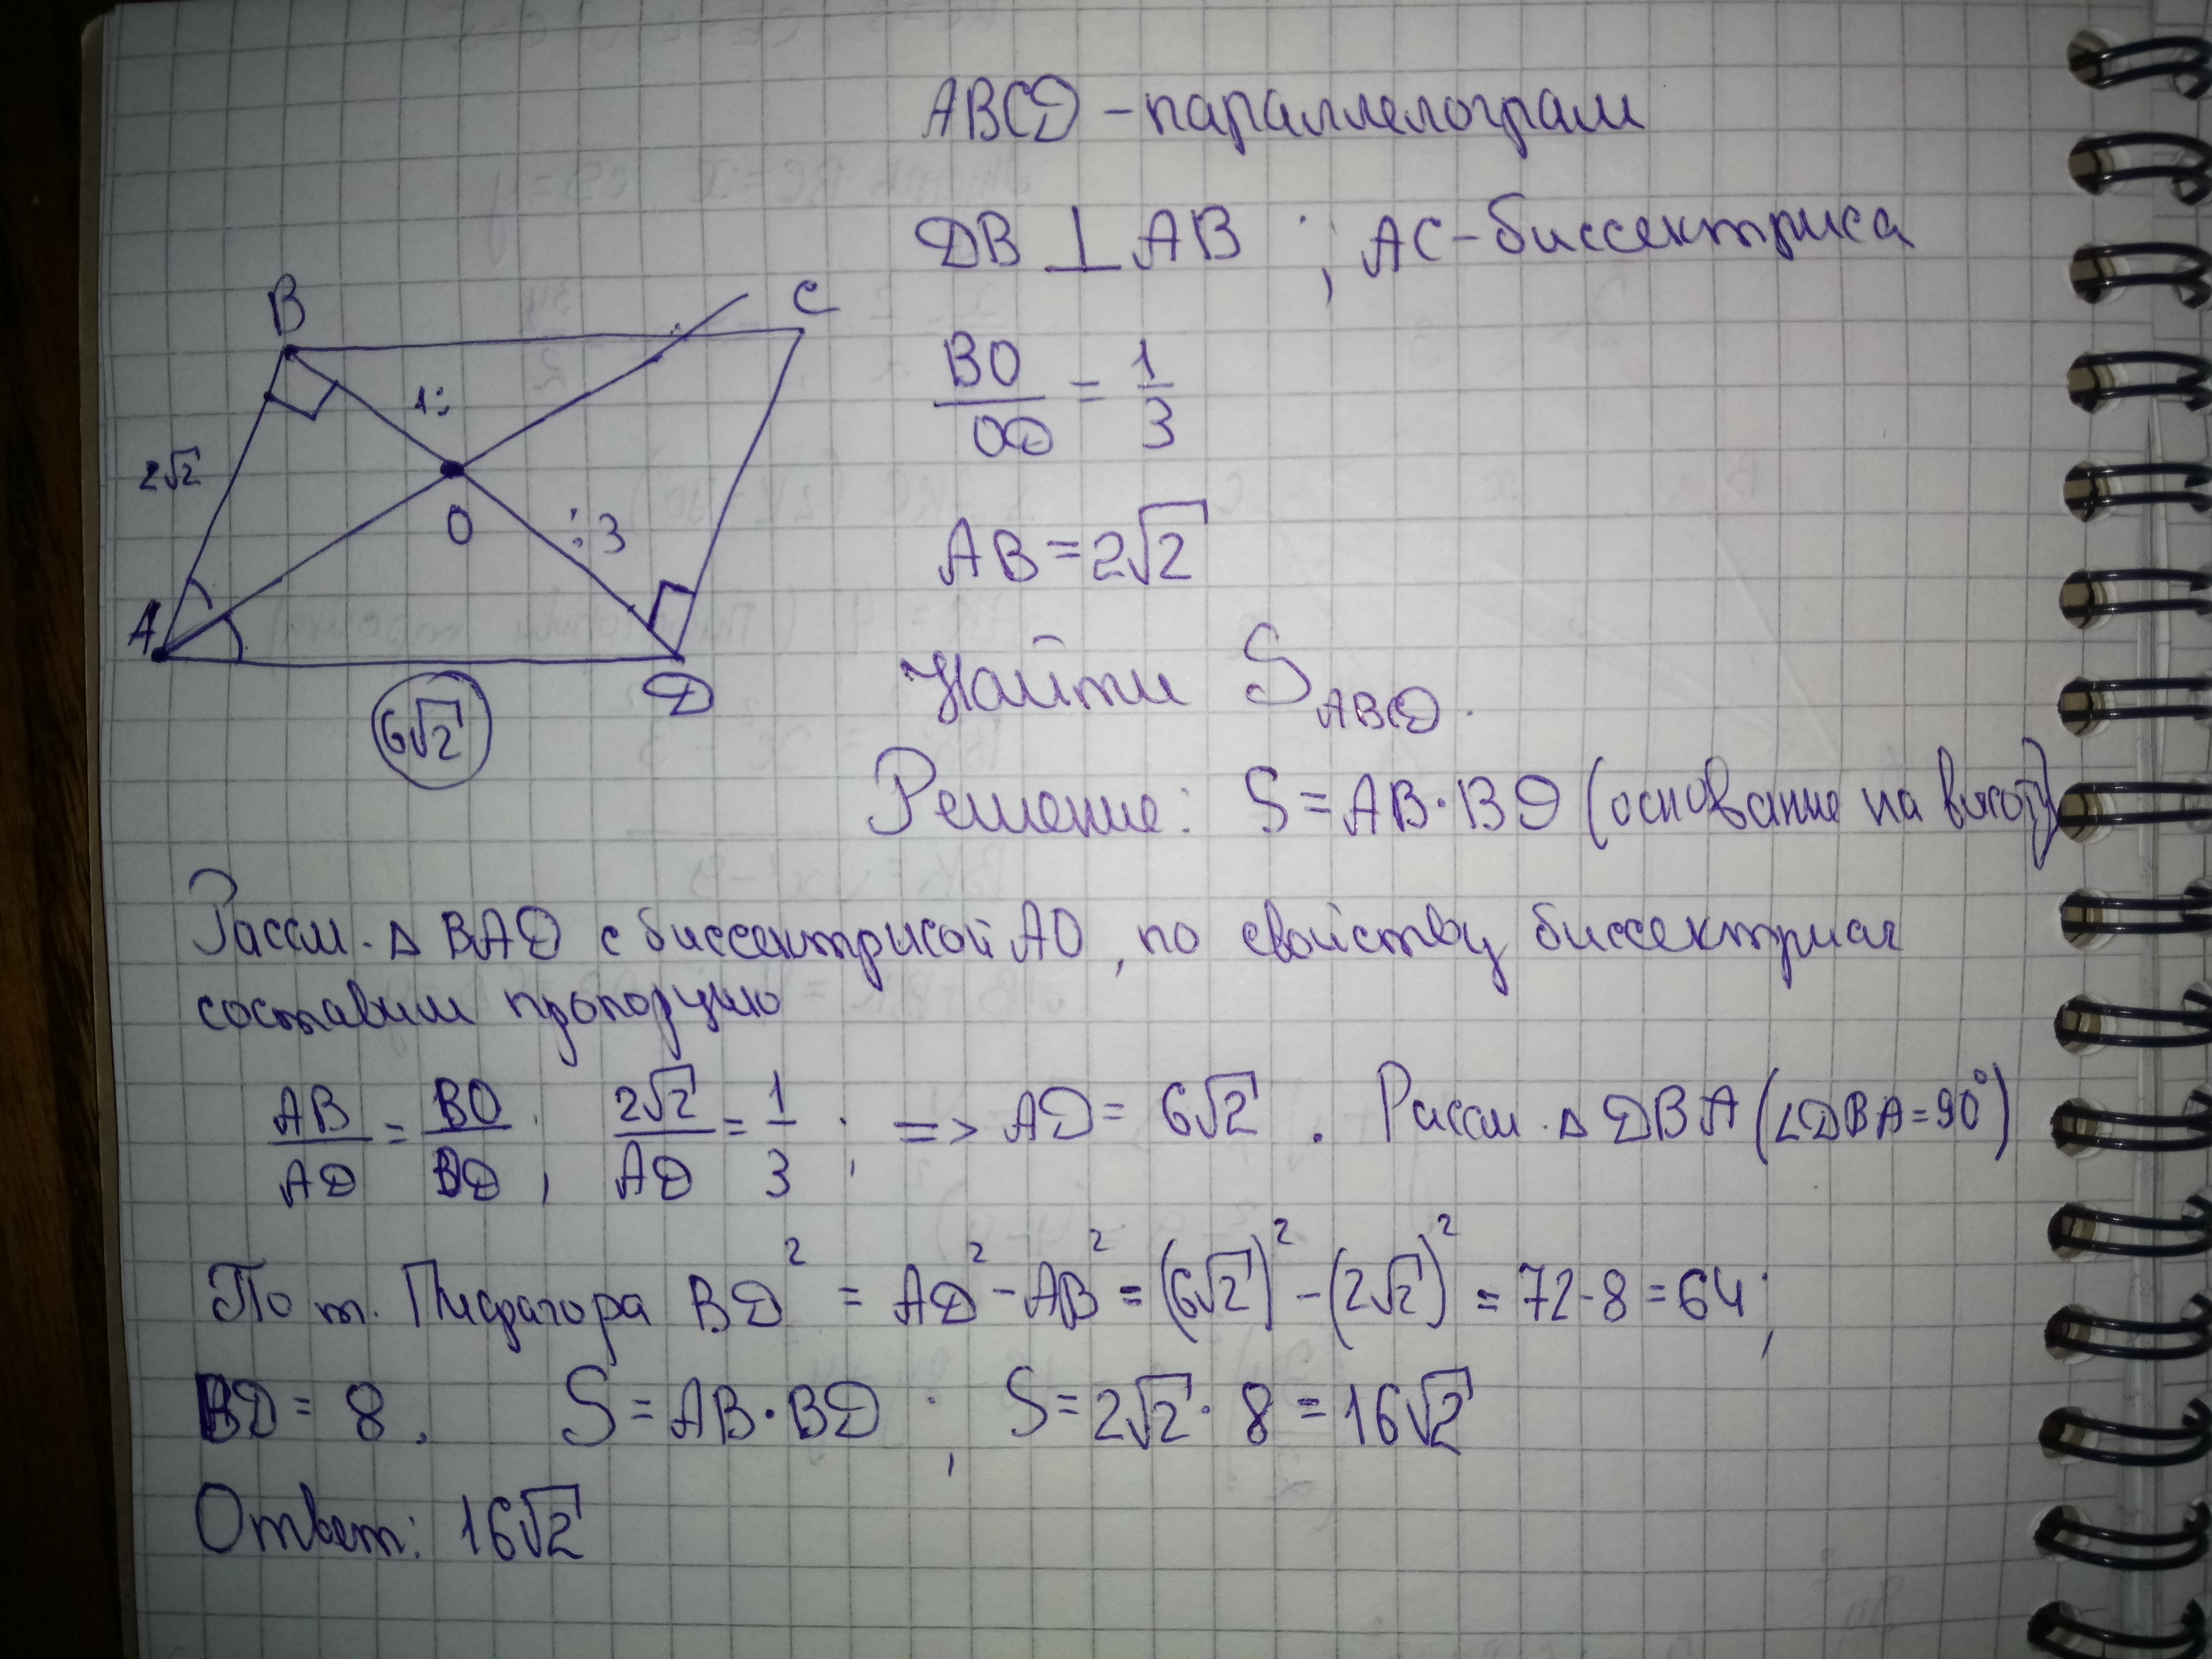 ABCD - параллелограм
DB ⊥ AB ; AC - биссектриса
B
C
1:
2√2
O
:3
A
D
6√2
BO/OD = 1/3
AB = 2√2
Найти S_ABCD.
Решение: S = AB · BD (основание на высоту)
Рассм. Δ BAD с биссектрисой AO, по свойству биссектрисы
составим пропорцию
AB/AD = BO/BD ; 2√2/AD = 1/3 ; => AD = 6√2 . Рассм. Δ DBA (∠DBA = 90°)
По т. Пифагора BD² = AD² - AB² = (6√2)² - (2√2)² = 72 - 8 = 64;
BD = 8. S = AB · BD ; S = 2√2 · 8 = 16√2
Ответ: 16√2